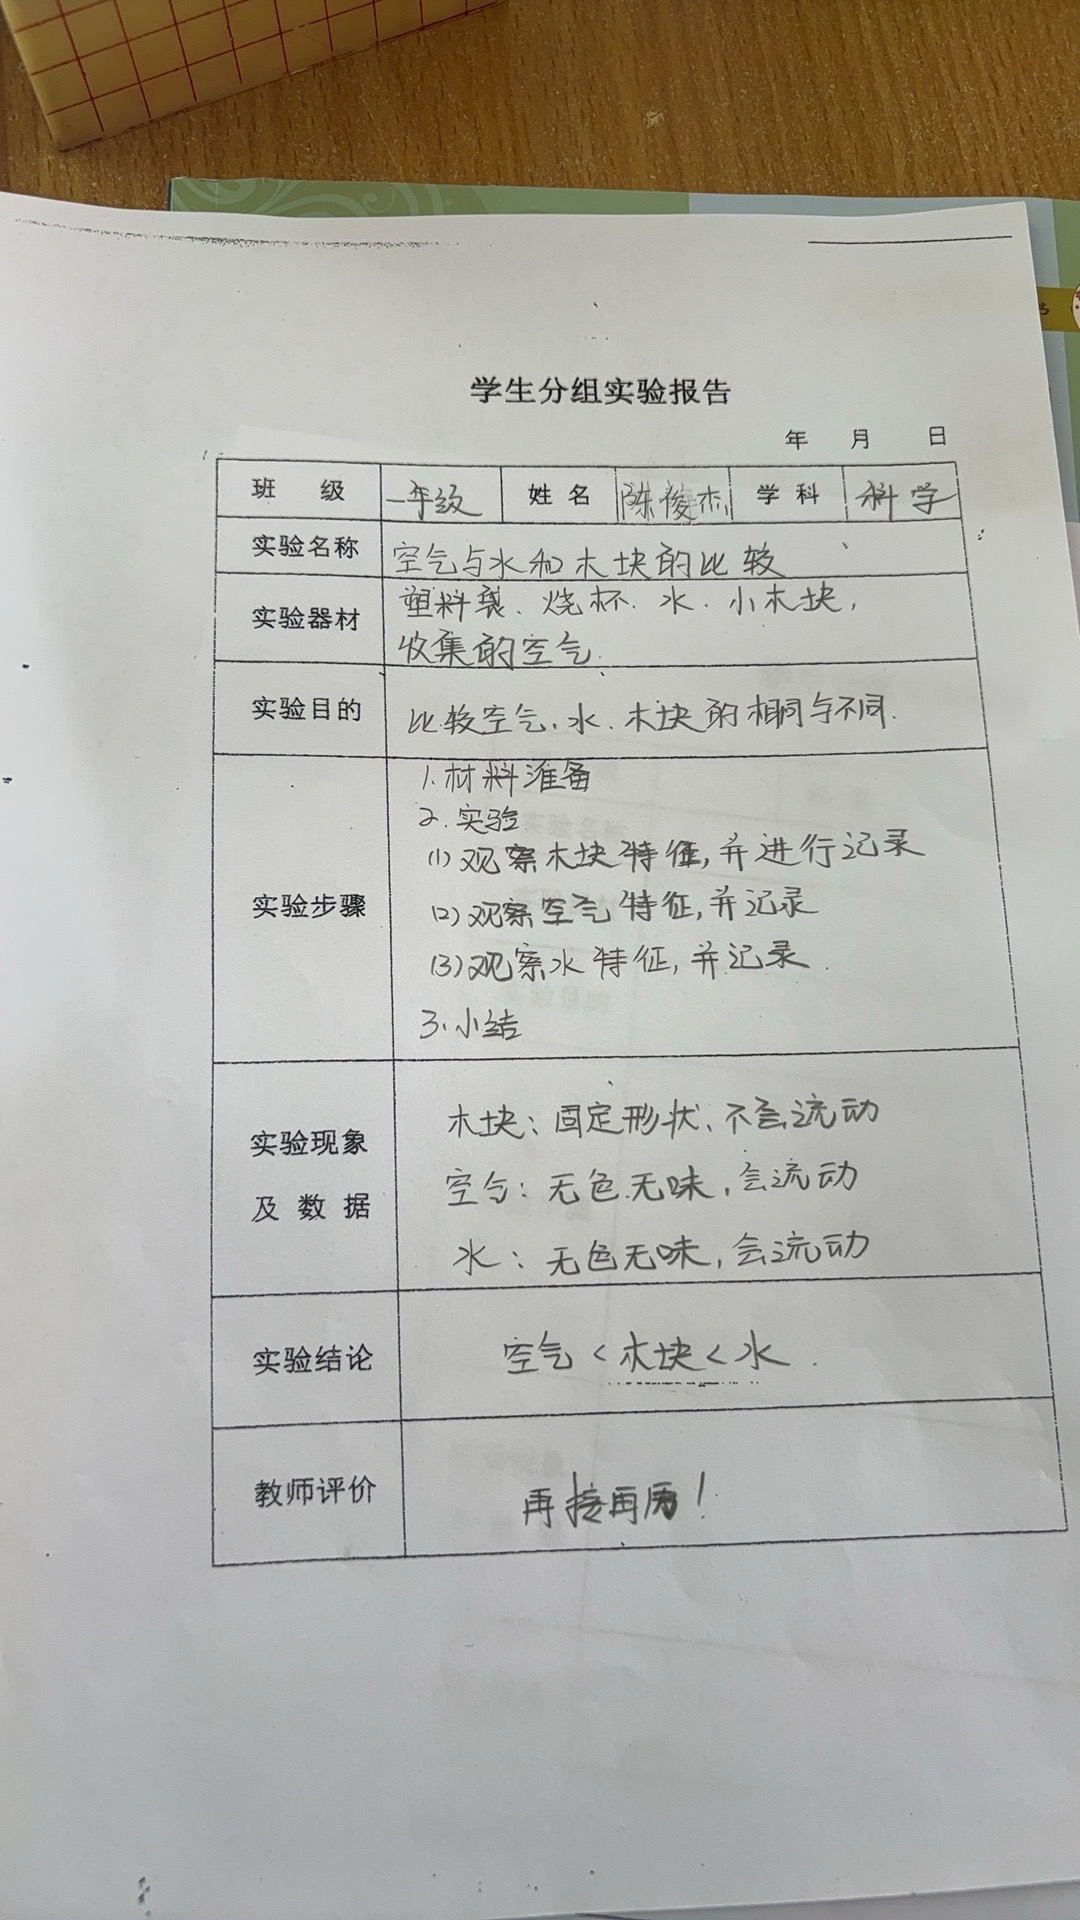 学生分组实验报告
年 月 日
班 级 一年级 姓 名 陈俊杰 学 科 科学
实验名称 空气与水和木块的比较
实验器材 塑料袋、烧杯、水、小木块,
收集的空气.
实验目的 比较空气、水、木块的相同与不同.
实验步骤
1.材料准备
2.实验
(1)观察木块特征,并进行记录
(2)观察空气特征,并记录
(3)观察水特征,并记录.
3.小结
实验现象
及 数 据
木块:固定形状、不会流动
空气:无色.无味,会流动
水:无色无味,会流动
实验结论 空气<木块<水.
教师评价 再接再历!